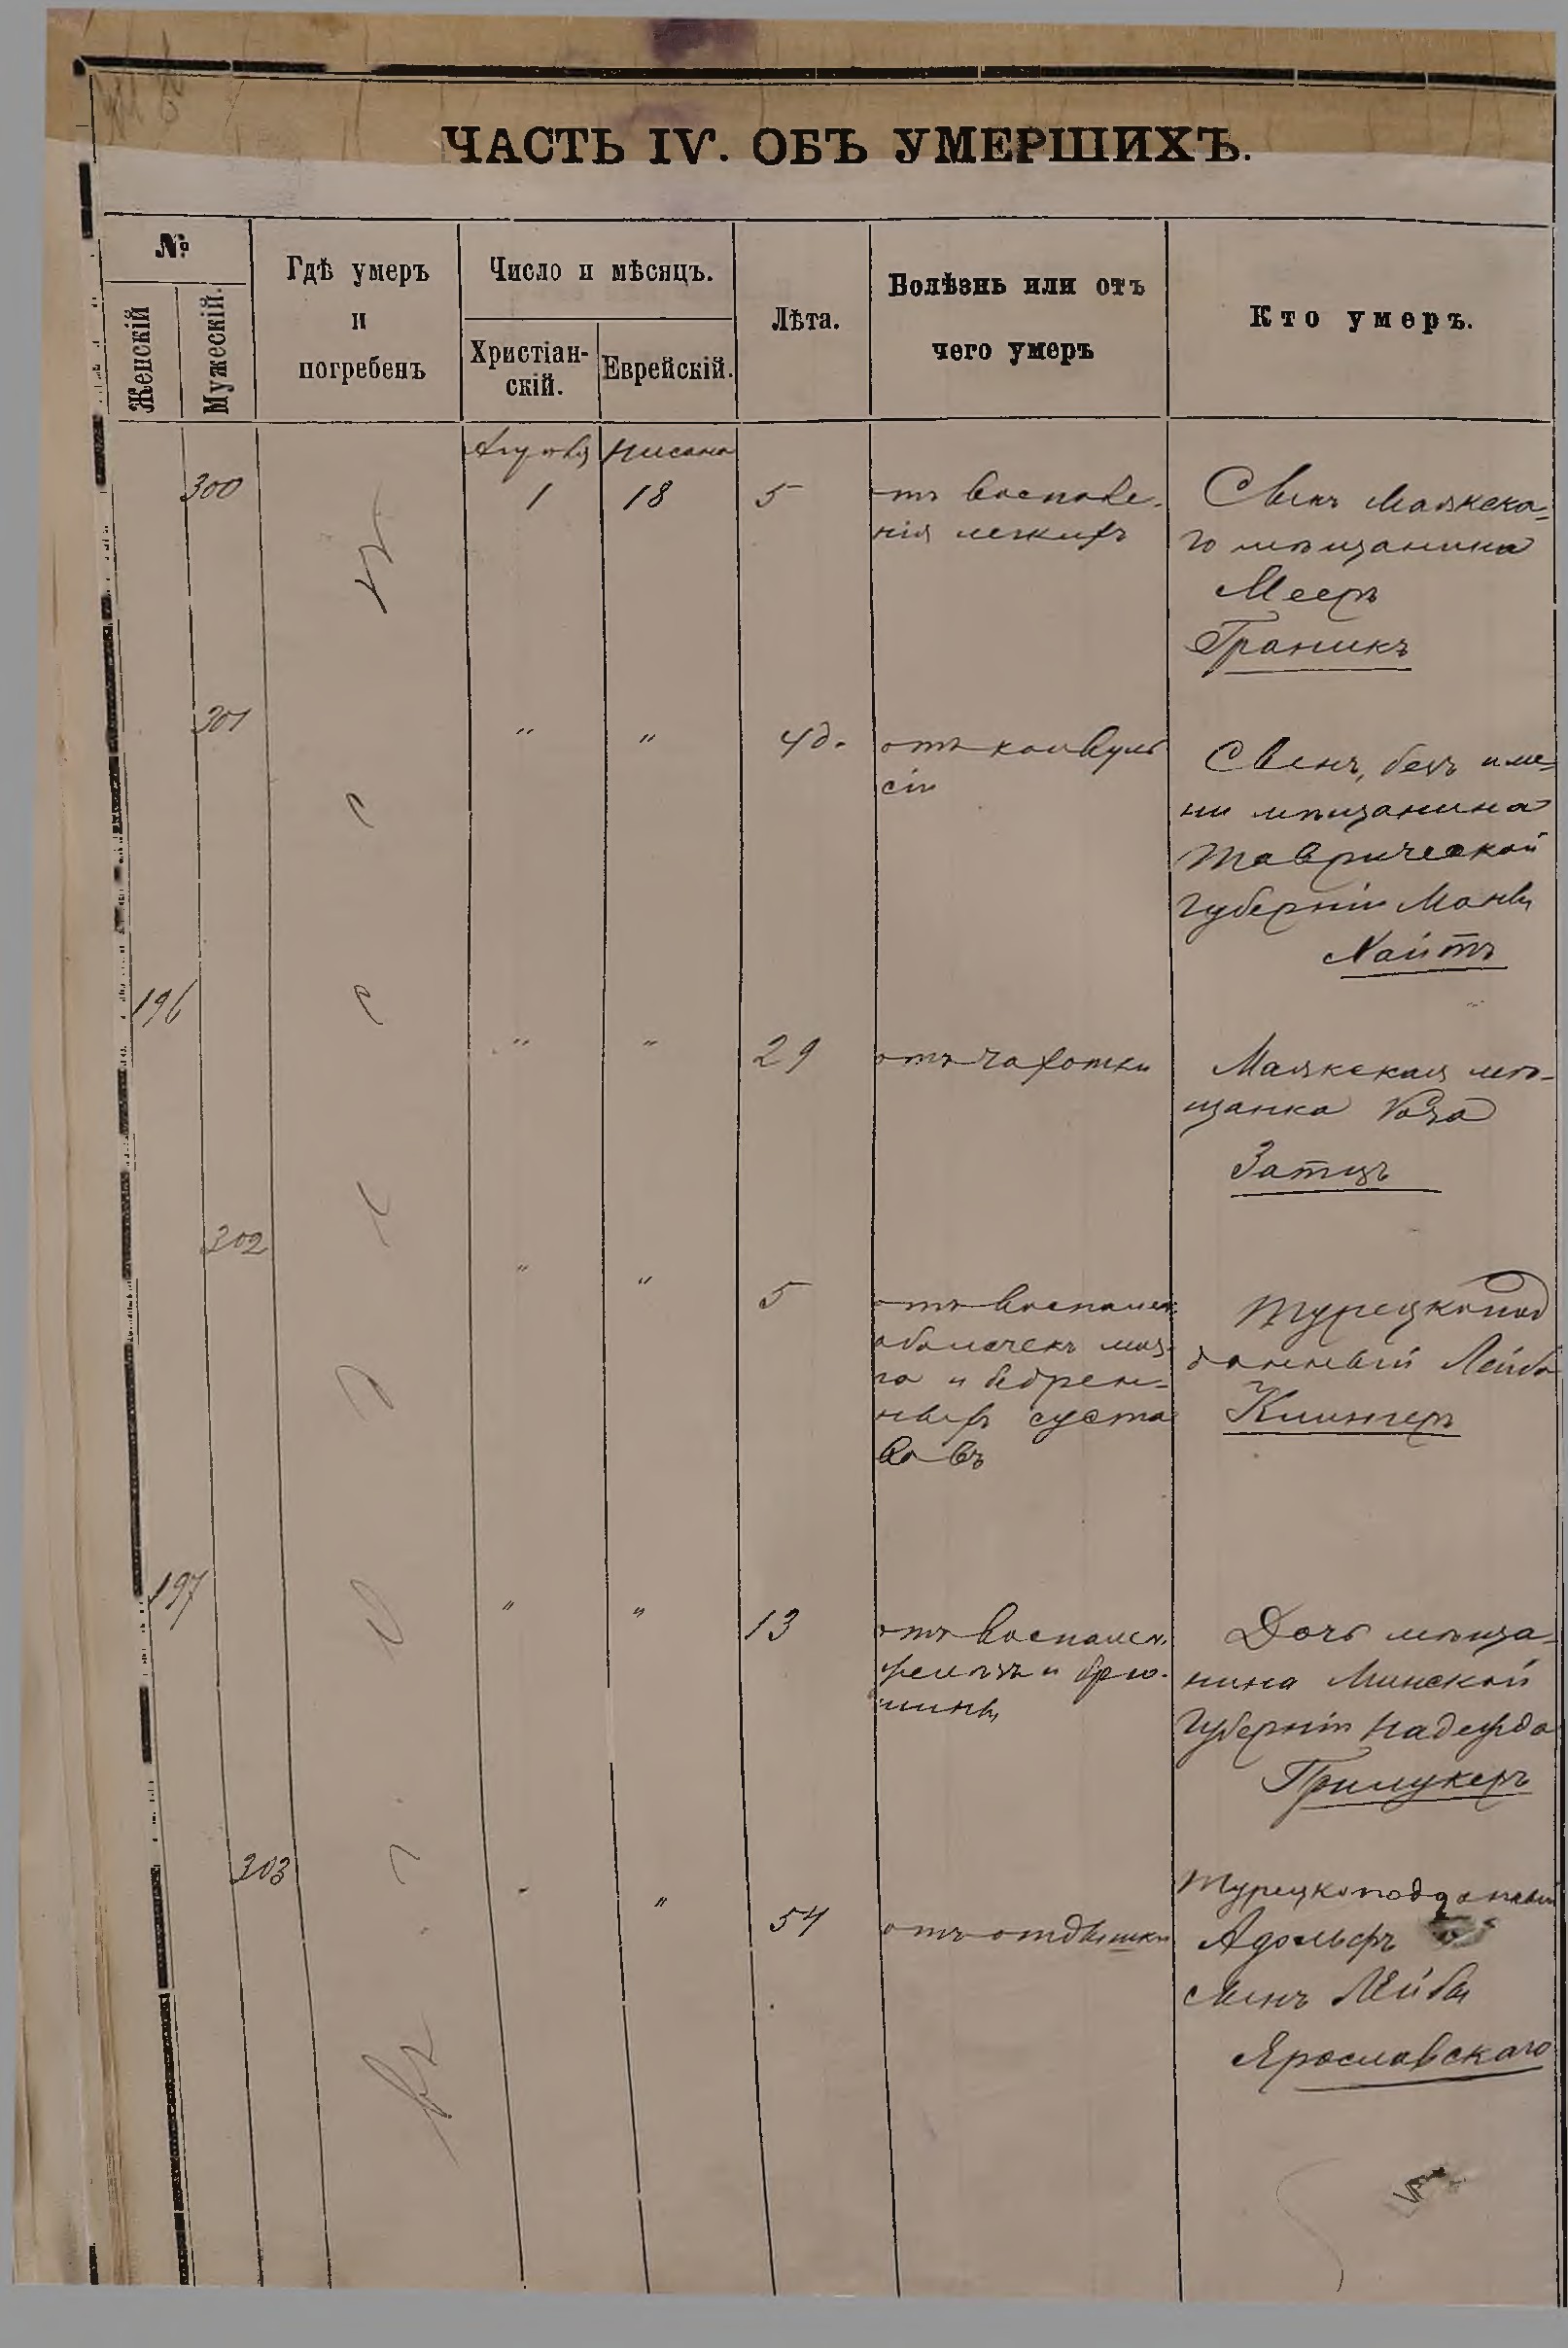 ЧАСТЬ IV. ОБЪ УМЕРШИХЪ.
№
Женскій
Мужескій.
Гдѣ умеръ
и
погребенъ
Число и мѣсяцъ.
Христіан-
скій.
Еврейскій.
Лѣта.
Болѣзнь или отъ
чего умеръ
Кто умеръ.
въ Одессѣ
Апрѣля Нисана
300 1 18 5
отъ воспале-
нія легкихъ
Сынъ Маякска-
го мѣщанина
Мееръ
Граникъ
301 " " 4 д.
отъ конвуль
сіи
Сынъ, безъ име-
ни мѣщанина
Таврической
губерніи
Хаитъ
196 " " 29
отъ чахотки
Маякская мѣ-
щанка Роза
Затцъ
302 " " 5
отъ воспален.
оболочекъ моз-
га и бедрен-
ныхъ суста
вовъ
Турецкопод
данный Лейба
Клингеръ
197 " " 13
отъ воспален.
желѣзъ и брю-
шины
Дочь мѣща-
нина Минской
губерніи Надежда
Прилукеръ
303 " " 54
отъ отдышки
Турецкоподданный
Адольфъ
сынъ Лейбы
Ярославскаго